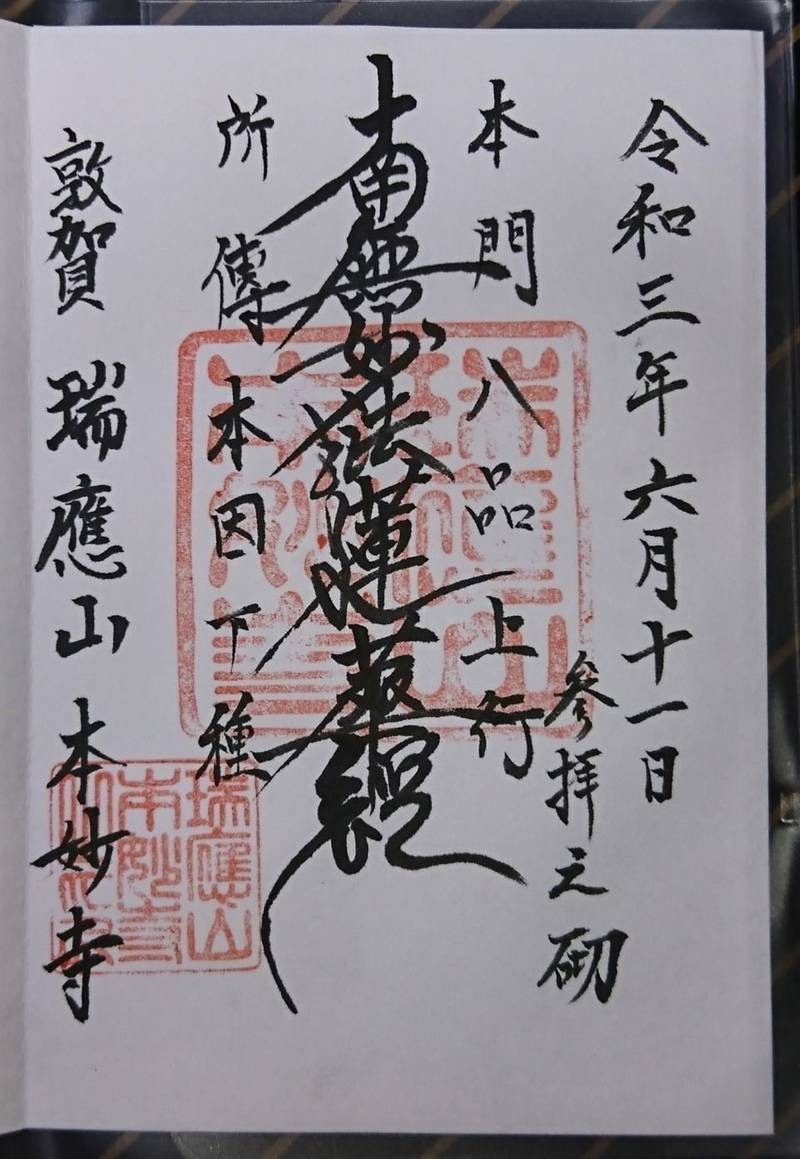 令和三年六月十一日
参拝之砌
本門八品上行
南無妙法蓮華経
所傳本因下種
敦賀 瑞應山 本妙寺
瑞應山
本妙寺